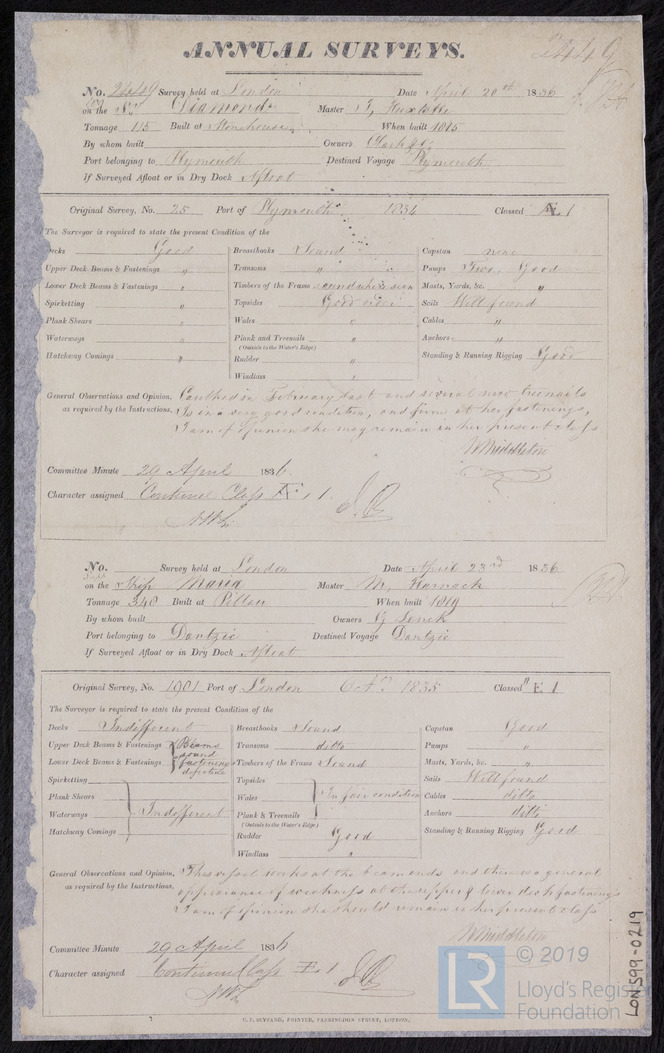 2449
ANNUAL SURVEYS.
No. 24449 Survey held at London Date April 20th 1836
on the Diamond Master T,
Tonnage 115 Built at Stonehouse, When built 1815
By whom built Owners Clark & Co.
Port belonging to Plymouth Destined Voyage Plymouth
If Surveyed Afloat or in Dry Dock Afloat
Original Survey, No. 25 Port of Plymouth 1834 Classed Æ 1
The Surveyor is required to state the present Condition of the
Decks Good
Upper Deck Beams & Fastenings "
Lower Deck Beams & Fastenings "
Spirketting "
Plank Shears "
Waterways "
Hatchway Comings "
Breasthooks Sound
Transoms " "
Timbers of the Frame sound where seen
Topsides Good order
Wales "
Plank and Treenails "
(Outside to the Water's Edge)
Rudder "
Windlass "
Capstan none
Pumps Two, Good
Masts, Yards, &c. "
Sails Well found
Cables "
Anchors "
Standing & Running Rigging Good
General Observations and Opinion, Caulked in February last and several new treenails
as required by the Instructions, Is in a very good condition, and firm at her fastenings,
I am of opinion she may remain in her present class
W Middleton
Committee Minute 29 April 1836.
Character assigned Continue Class Æ 1
No. Survey held at London Date April 23rd 1836
on the Ship Maria Master M,
Tonnage 340 Built at Pillau When built 1819
By whom built Owners G
Port belonging to Dantzic Destined Voyage Dantzic
If Surveyed Afloat or in Dry Dock Afloat
Original Survey, No. 1901 Port of London Octr 1835 Classed E 1
The Surveyor is required to state the present Condition of the
Decks Indifferent
Upper Deck Beams & Fastenings Beams sound
Lower Deck Beams & Fastenings fastenings defective
Spirketting
Plank Shears
Waterways Indifferent
Hatchway Comings
Breasthooks Sound
Transoms ditto
Timbers of the Frame Sound
Topsides
Wales In fair condition
Plank & Treenails
(Outside to the Water's Edge)
Rudder Good
Windlass "
Capstan Good
Pumps "
Masts, Yards, &c. "
Sails Well found
Cables ditto
Anchors ditto
Standing & Running Rigging Good
General Observations and Opinion, This vessel works at the beam ends and there is a general
as required by the Instructions, appearance of weakness at the upper & lower deck fastenings
I am of opinion she should remain in her present class
W Middleton
Committee Minute 29 April 1836
Character assigned Continue Class E 1
PRINTER, FARRINGDON STREET, LONDON.
LR
© 2019
Lloyd's Register
Foundation
LON599-0219